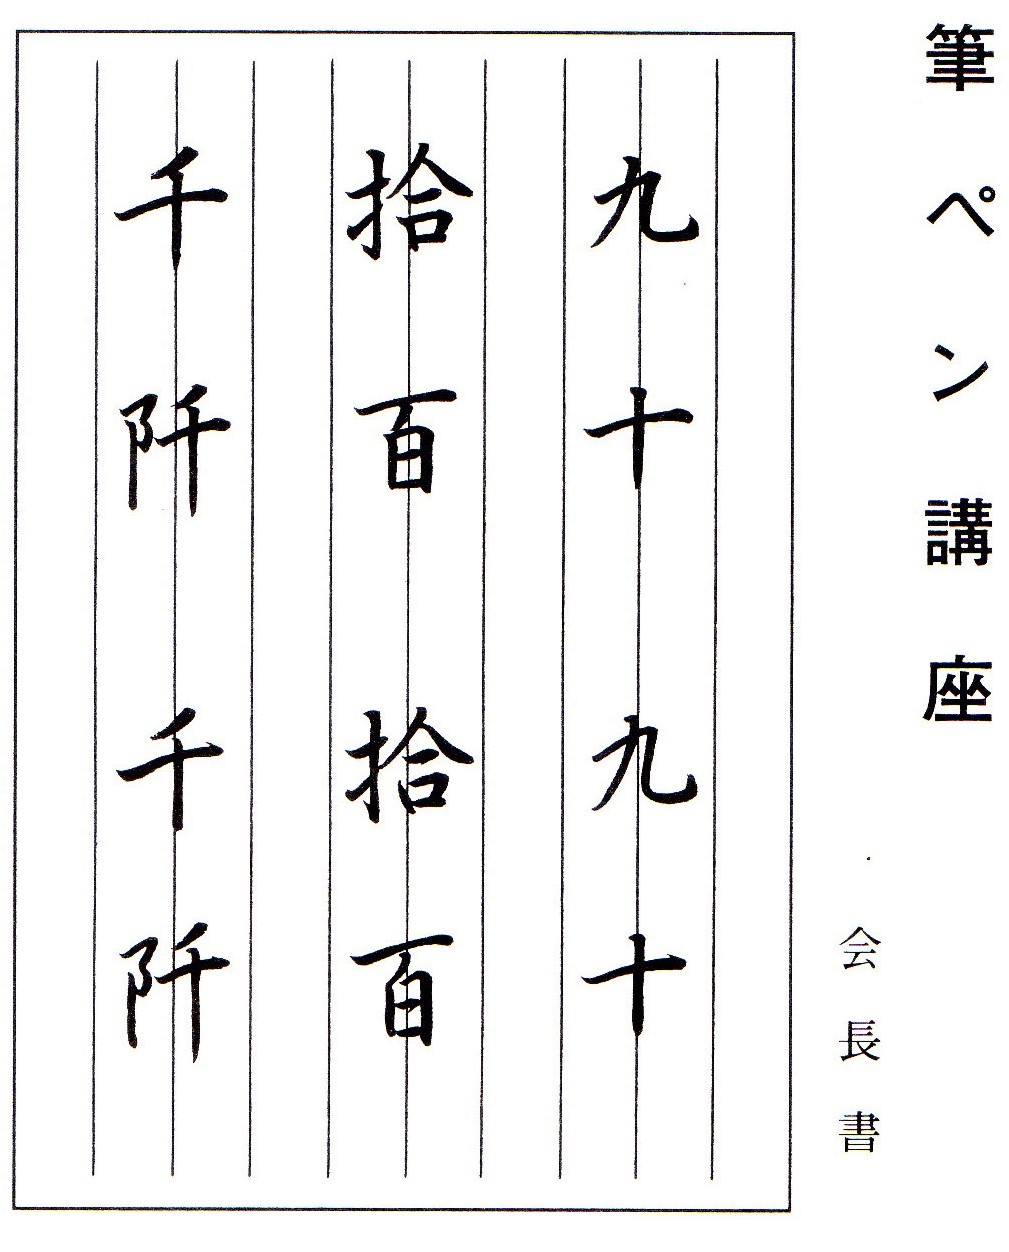 筆ペン講座
会長書
九十　九十
拾百　拾百
千阡　千阡